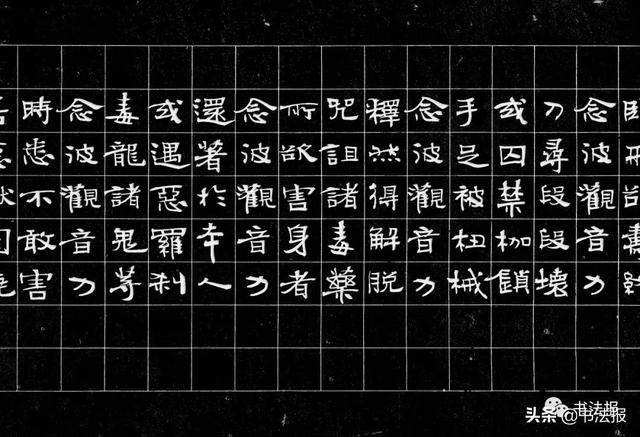 壽終
念彼觀音力
刀尋段段壞
或囚禁枷鎖
手足被杻械
念彼觀音力
釋然得解脫
咒詛諸毒藥
所欲害身者
念彼觀音力
還著於本人
或遇惡羅刹
毒龍諸鬼等
念彼觀音力
時悉不敢害
书法报
头条@书法报